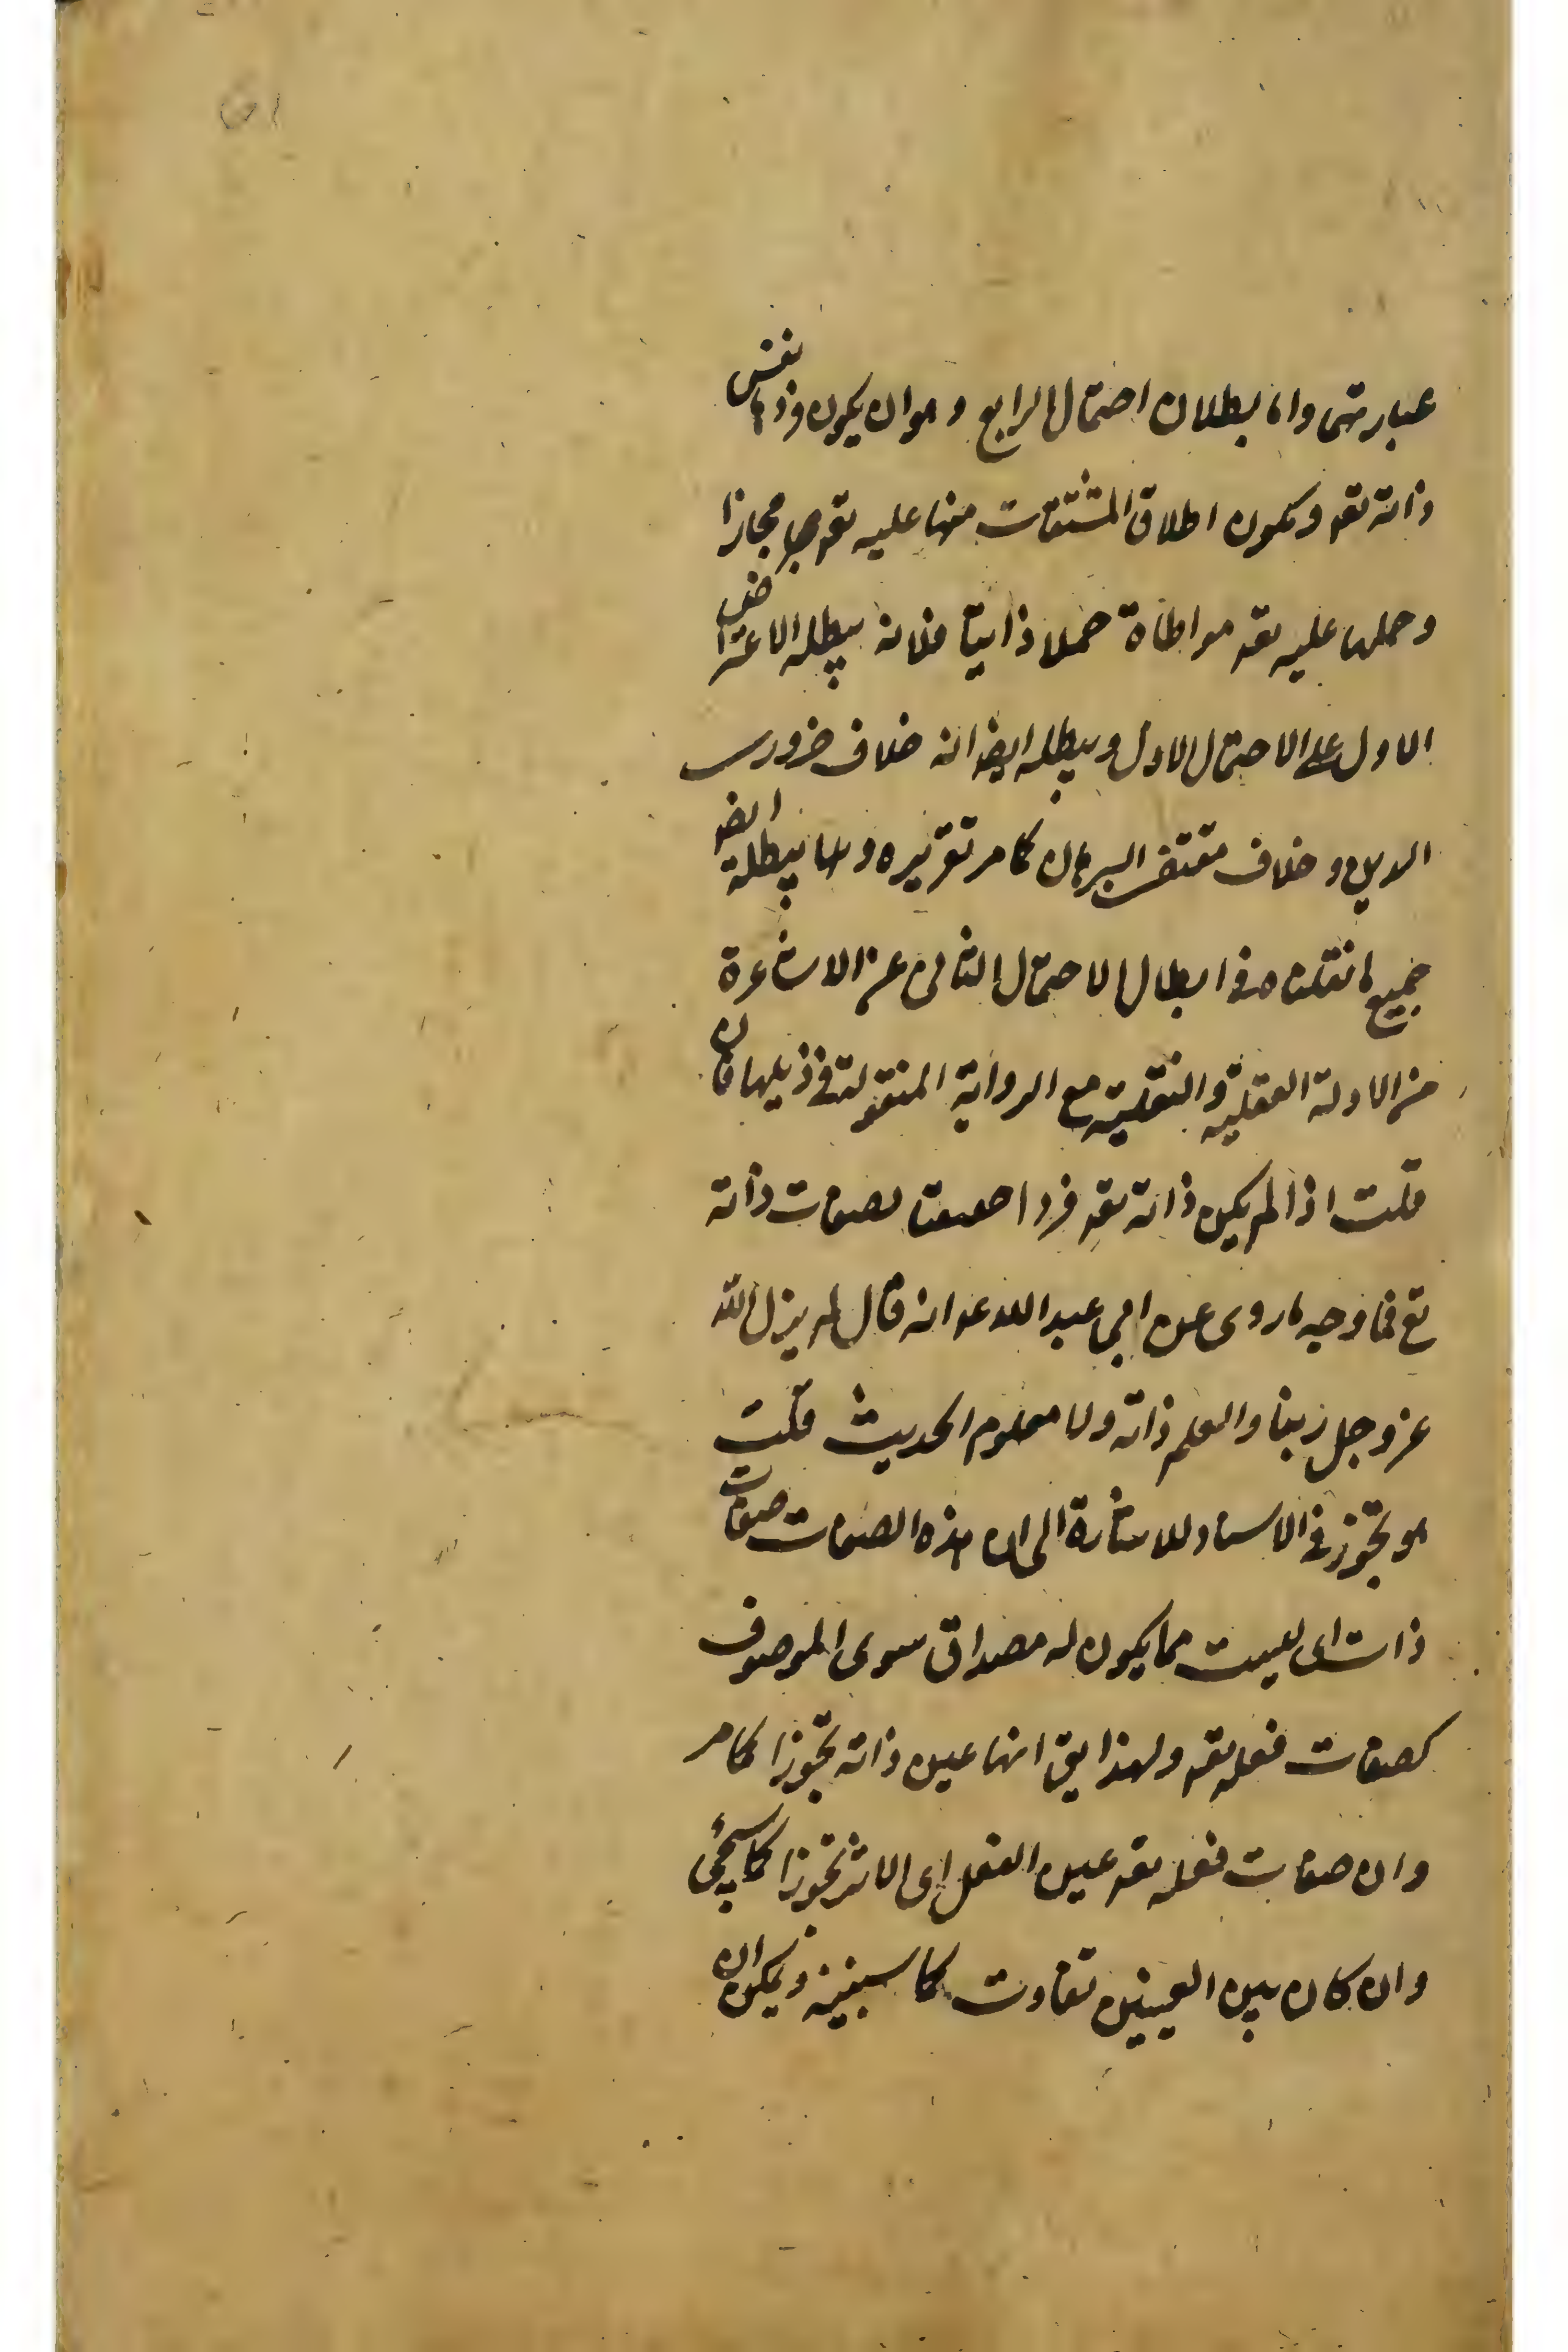 عبارتهى واما بطلان احتمال الرابع وهو ان يكون فردها نفس
ذاته تعه ويكون اطلاق المشتقات منها عليه تعه مجازا
وحملها عليه تعه مواطاة حملا ذاتيا فلانه يبطله الاعتراض
الاول على الاحتمال الاول ويبطله ايضا انه خلاف ضرورى
الدين و خلاف مقتضى البرهان كما مر تقريره و يبطله ايضا
جميع ما نقلناه فى ابطال الاحتمال الثانى عن الاشاعرة
من الادلة العقلية والنقلية مع الرواية المنقولة فى ذيلها فان
قلت اذا لم يكن ذاته تعه فردا حقيقيا لصفات ذاته
تع فما وجه ما روى عن ابي عبد الله ع انه قال لم يزل الله
عز وجل ربنا والعلم ذاته ولا معلوم الحديث قلت
هو تجوز فى الاسناد للاشارة الى ان هذه الصفات صفات
ذات اى ليست مما يكون له مصداق سوى الموصوف
كصفات فعله تعه ولهذا يق انها عين ذاته تجوزا كما مر
وان صفات فعله تعه عين الفعل اى الاثر تجوزا كما سيجئ
وان كان بين العينين تفاوت كما سنبينه ويمكن ان